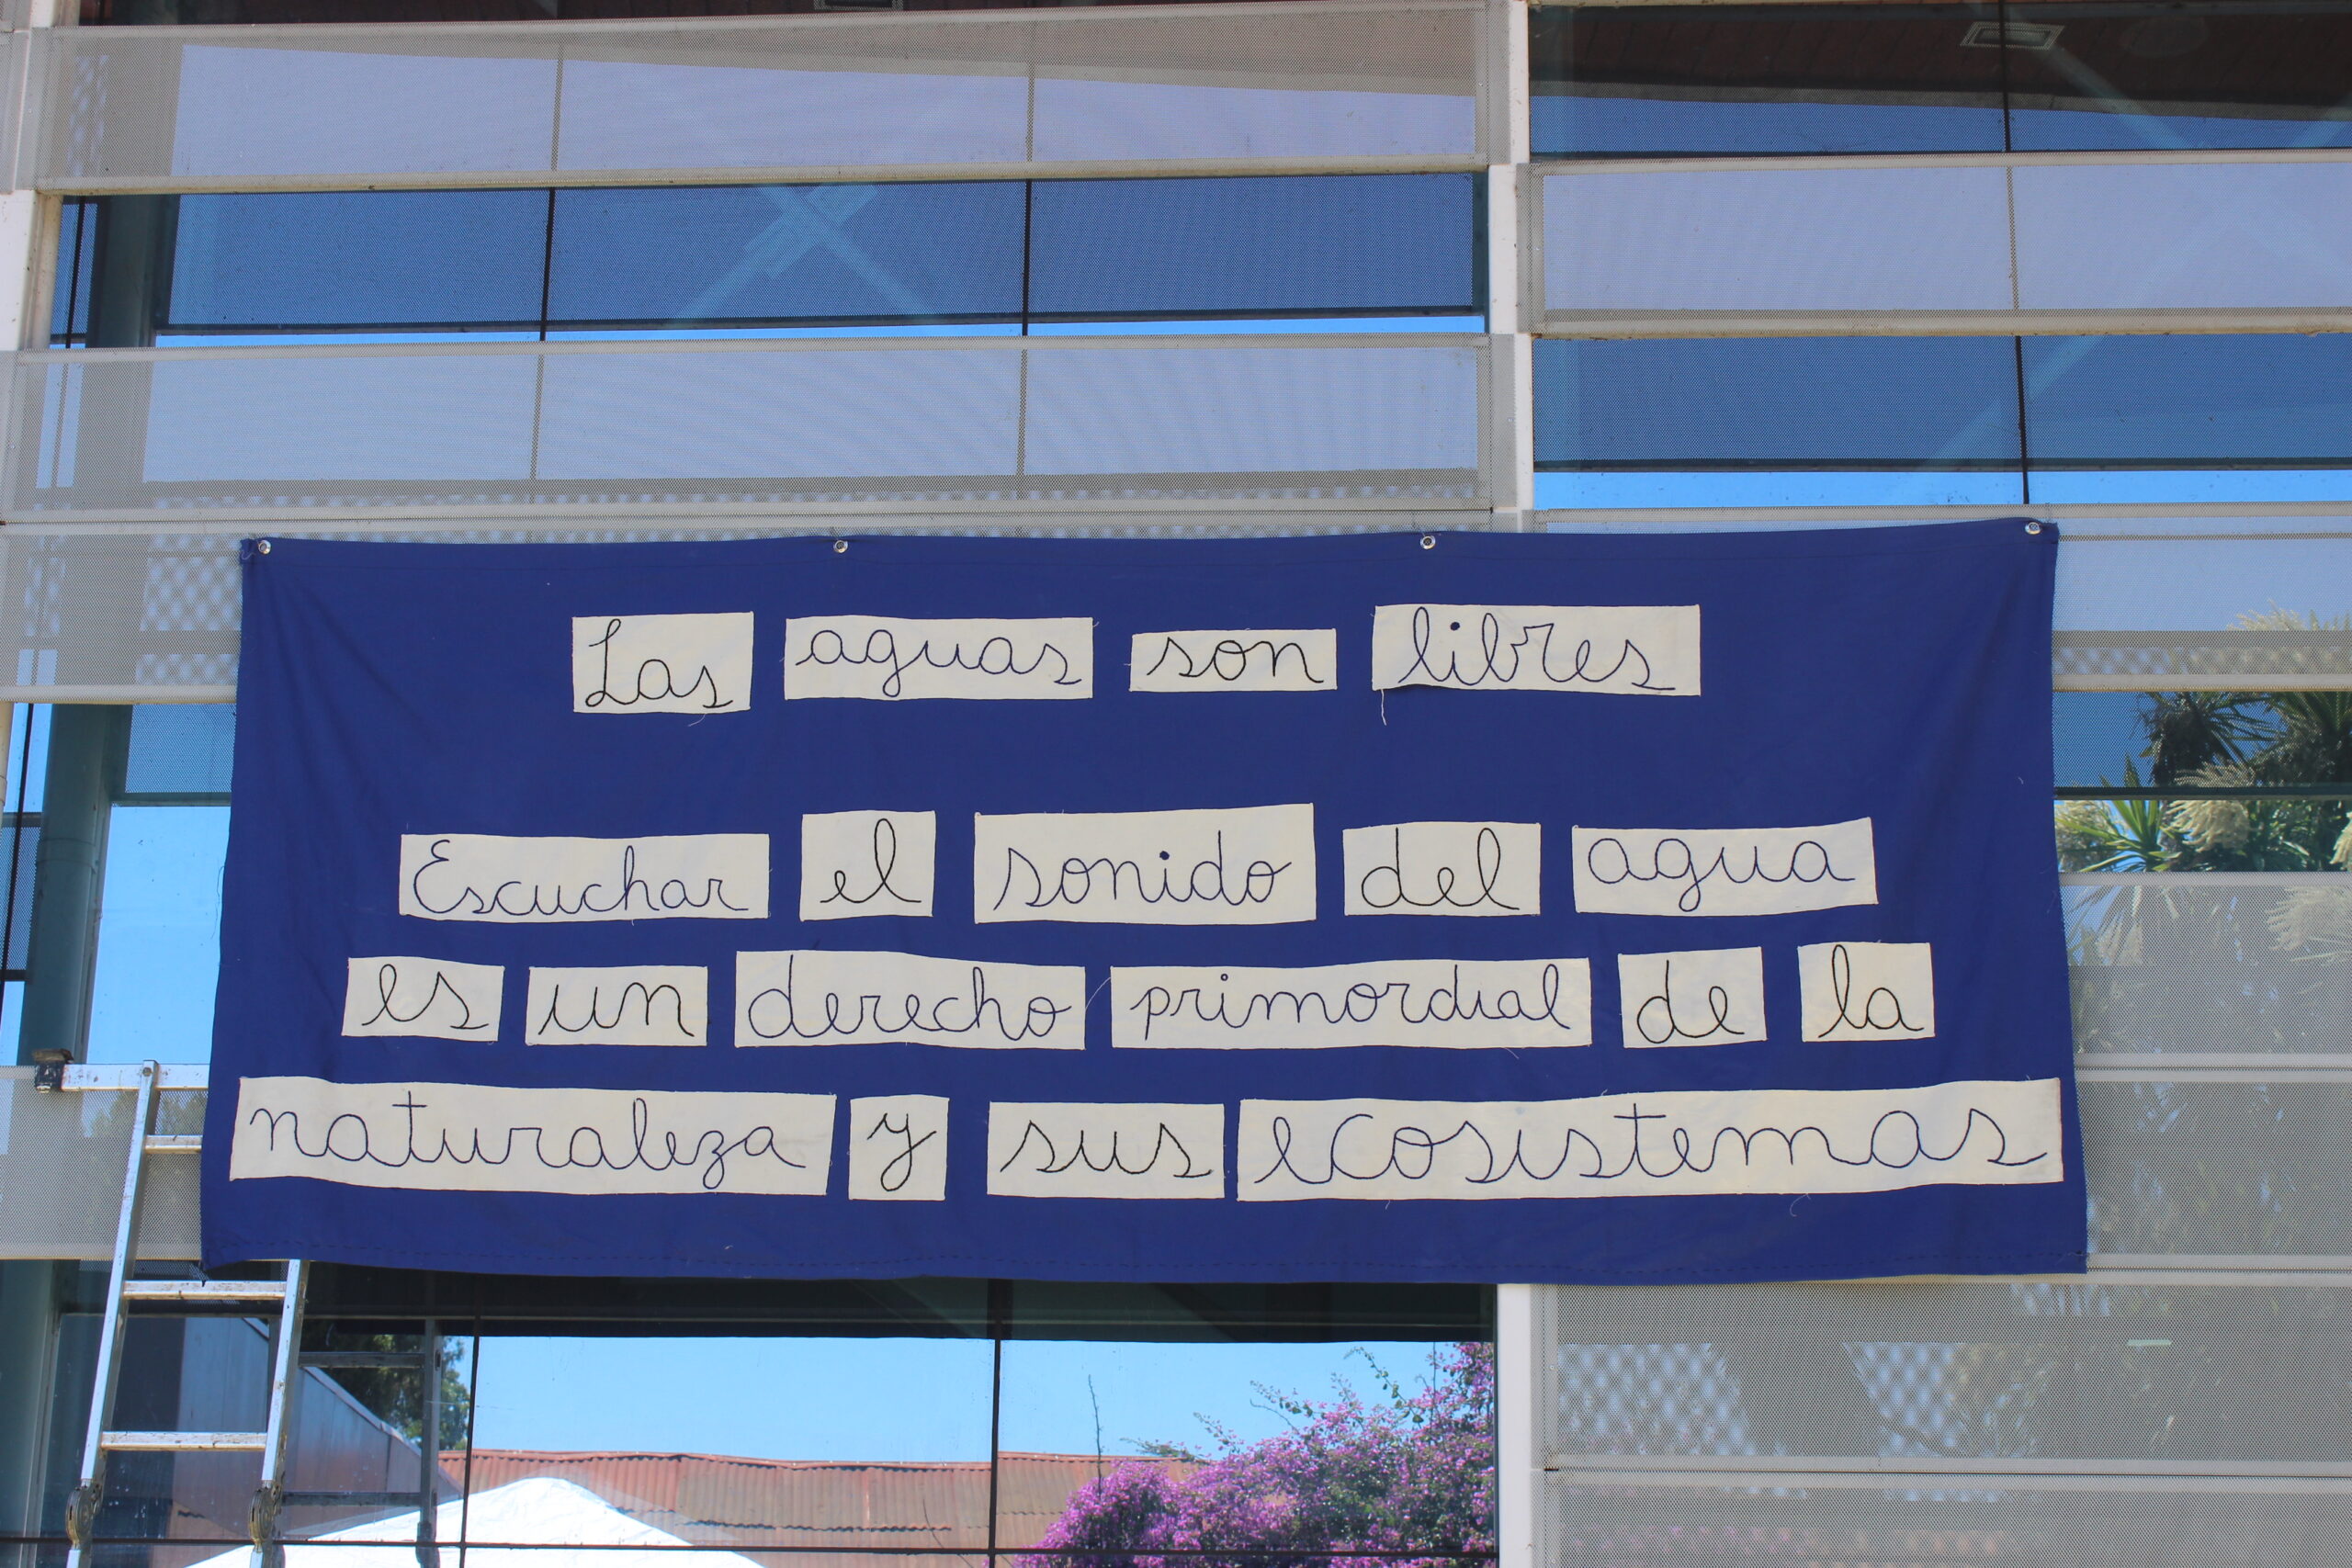 Las aguas son libres
Escuchar el sonido del agua
es un derecho primordial de la
naturaleza y sus ecosistemas